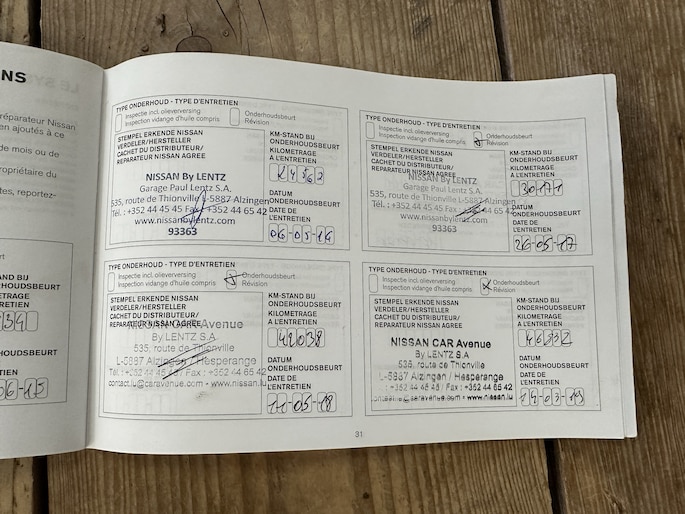 NS
réparateur Nissan
en ajoutés à ce
de mois ou de
opriétaire du
tes, reportez-
AND BIJ
HOUDSBEURT
METRAGE
RETIEN
34
HOUDSBEURT
06-15
TYPE ONDERHOUD - TYPE D'ENTRETIEN
Inspectie incl. olieverversing
Inspection vidange d'huile compris
Onderhoudsbeurt
Révision
STEMPEL ERKENDE NISSAN
VERDELER/HERSTELLER
CACHET DU DISTRIBUTEUR/
REPARATEUR NISSAN AGREE
NISSAN By LENTZ
Garage Paul Lentz S.A.
535, route de Thionville L-5887 Alzingen
Tél. : +352 44 45 45 Fax : +352 44 65 42
www.nissanbylentz.com
93363
KM-STAND BIJ
ONDERHOUDSBEURT
KILOMETRAGE
A L'ENTRETIEN
DATUM
ONDERHOUDSBEURT
DATE DE
L'ENTRETIEN
06-05-16
TYPE ONDERHOUD - TYPE D'ENTRETIEN
Inspectie incl. olieverversing
Inspection vidange d'huile compris
Onderhoudsbeurt
Révision
STEMPEL ERKENDE NISSAN
VERDELER/HERSTELLER
CACHET DU DISTRIBUTEUR/
REPARATEUR NISSAN AGREE
NISSAN By LENTZ
Garage Paul Lentz S.A.
535, route de Thionville L-5887 Alzingen
Tél. : +352 44 45 45 Fax : +352 44 65 42
www.nissanbylentz.com
93363
KM-STAND BIJ
ONDERHOUDSBEURT
KILOMETRAGE
A L'ENTRETIEN
DATUM
ONDERHOUDSBEURT
DATE DE
L'ENTRETIEN
26-05-17
TYPE ONDERHOUD - TYPE D'ENTRETIEN
Inspectie incl. olieverversing
Inspection vidange d'huile compris
Onderhoudsbeurt
Révision
STEMPEL ERKENDE NISSAN
VERDELER/HERSTELLER
CACHET DU DISTRIBUTEUR/
REPARATEUR NISSAN AGREE
NISSAN CAR Avenue
By LENTZ S.A
535, route de Thionville
L-5887 Alzingen / Hesperange
Tél.: +352 44 45 45 / Fax : +352 44 65 42
contact.lu@caravenue.com - www.nissan.lu
KM-STAND BIJ
ONDERHOUDSBEURT
KILOMETRAGE
A L'ENTRETIEN
42038
DATUM
ONDERHOUDSBEURT
DATE DE
L'ENTRETIEN
11-05-18
TYPE ONDERHOUD - TYPE D'ENTRETIEN
Inspectie incl. olieverversing
Inspection vidange d'huile compris
Onderhoudsbeurt
Révision
STEMPEL ERKENDE NISSAN
VERDELER/HERSTELLER
CACHET DU DISTRIBUTEUR/
REPARATEUR NISSAN AGREE
NISSAN CAR Avenue
By LENTZ S.A
535, route de Thionville
L-5887 Alzingen / Hesperange
+352 44 45 45 / Fax : +352 44 65 42
www.nissan.lu
KM-STAND BIJ
ONDERHOUDSBEURT
KILOMETRAGE
A L'ENTRETIEN
DATUM
ONDERHOUDSBEURT
DATE DE
L'ENTRETIEN
19-03-19
31